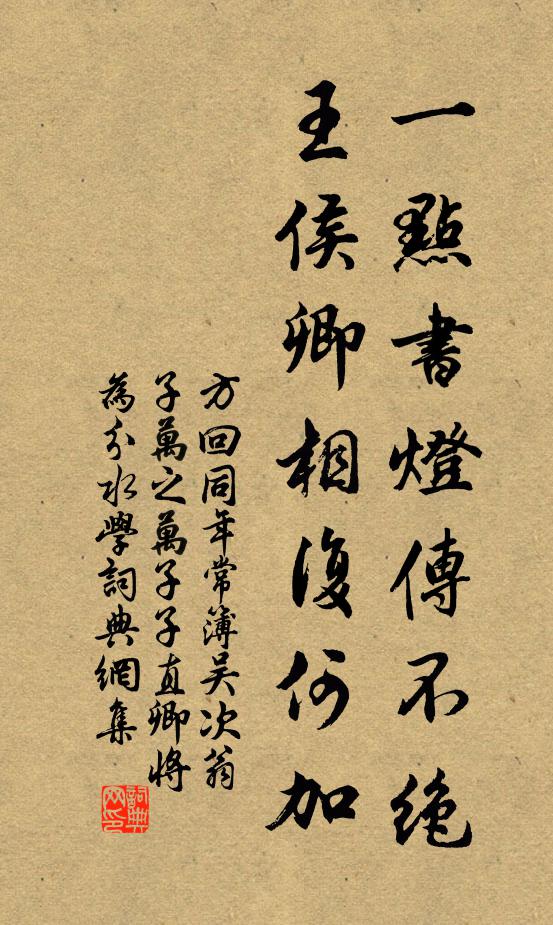 一點書燈傳不絶
王侯卿相復何加
方回同年常簿吴次翁
子萬之萬子子直卿將
為分水學詞典網集
詞典网印